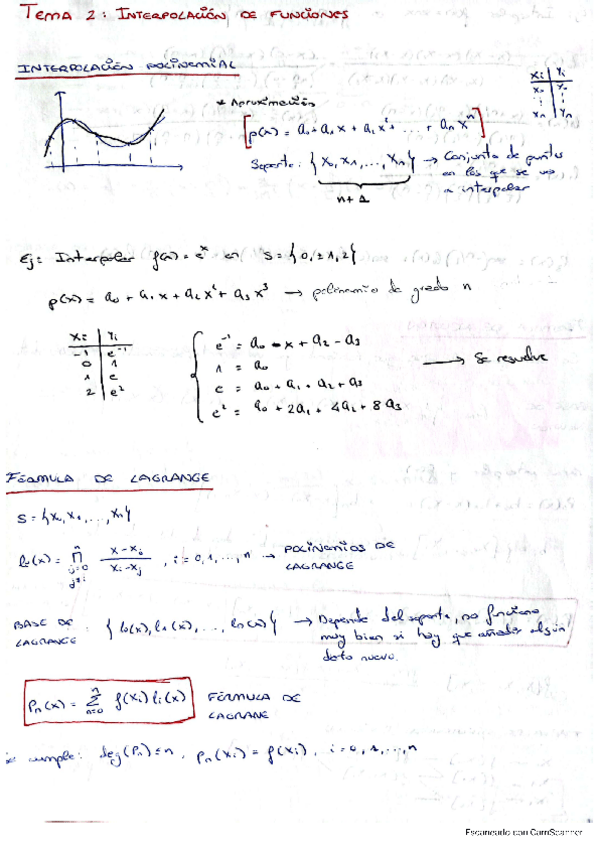 TEMA 2: INTERPOLACIÓN DE FUNCIONES
INTERPOLACIÓN POLINOMIAL
* Aproximación
xi | yi
x0 | y0
⋮ | ⋮
xn | yn
p(x) = a0 + a1 x + a2 x² + ... + an x^n
Soporte: {x0, x1, ..., xn} → Conjunto de puntos
en los que se va
a interpolar
n+1
Ej: Interpolar f(x) = e^x en S = {0, ±1, 2}
p(x) = a0 + a1 x + a2 x² + a3 x³ → polinomio de grado n
xi | yi
-1 | e^-1
0 | 1
1 | e
2 | e²
e^-1 = a0 - x + a2 - a3
1 = a0
e = a0 + a1 + a2 + a3
e² = a0 + 2a1 + 4a2 + 8a3
→ Se resuelve
FÓRMULA DE LAGRANGE
S = {x0, x1, ..., xn}
li(x) = ∏ (j=0, j≠i; n) (x - xj)/(xi - xj), i = 0, 1, ..., n → POLINOMIOS DE
LAGRANGE
BASE DE
LAGRANGE: {l0(x), l1(x), ..., ln(x)} → Depende del soporte, no funciona
muy bien si hay que añadir algún
dato nuevo.
Pn(x) = Σ (n=0; n) f(xi) li(x) FÓRMULA DE
LAGRANE
cumple: deg(Pn) ≤ n, pn(xi) = f(xi), i = 0, 1, ..., n
Escaneado con CamScanner